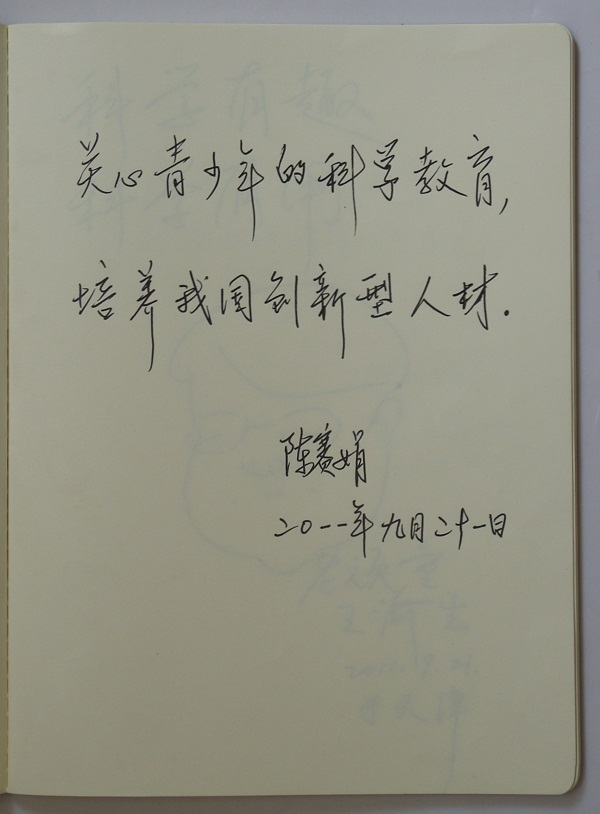 关心青少年的科学教育,
培养我国创新型人材.
陈赛娟
二〇一一年九月二十一日
科学有趣